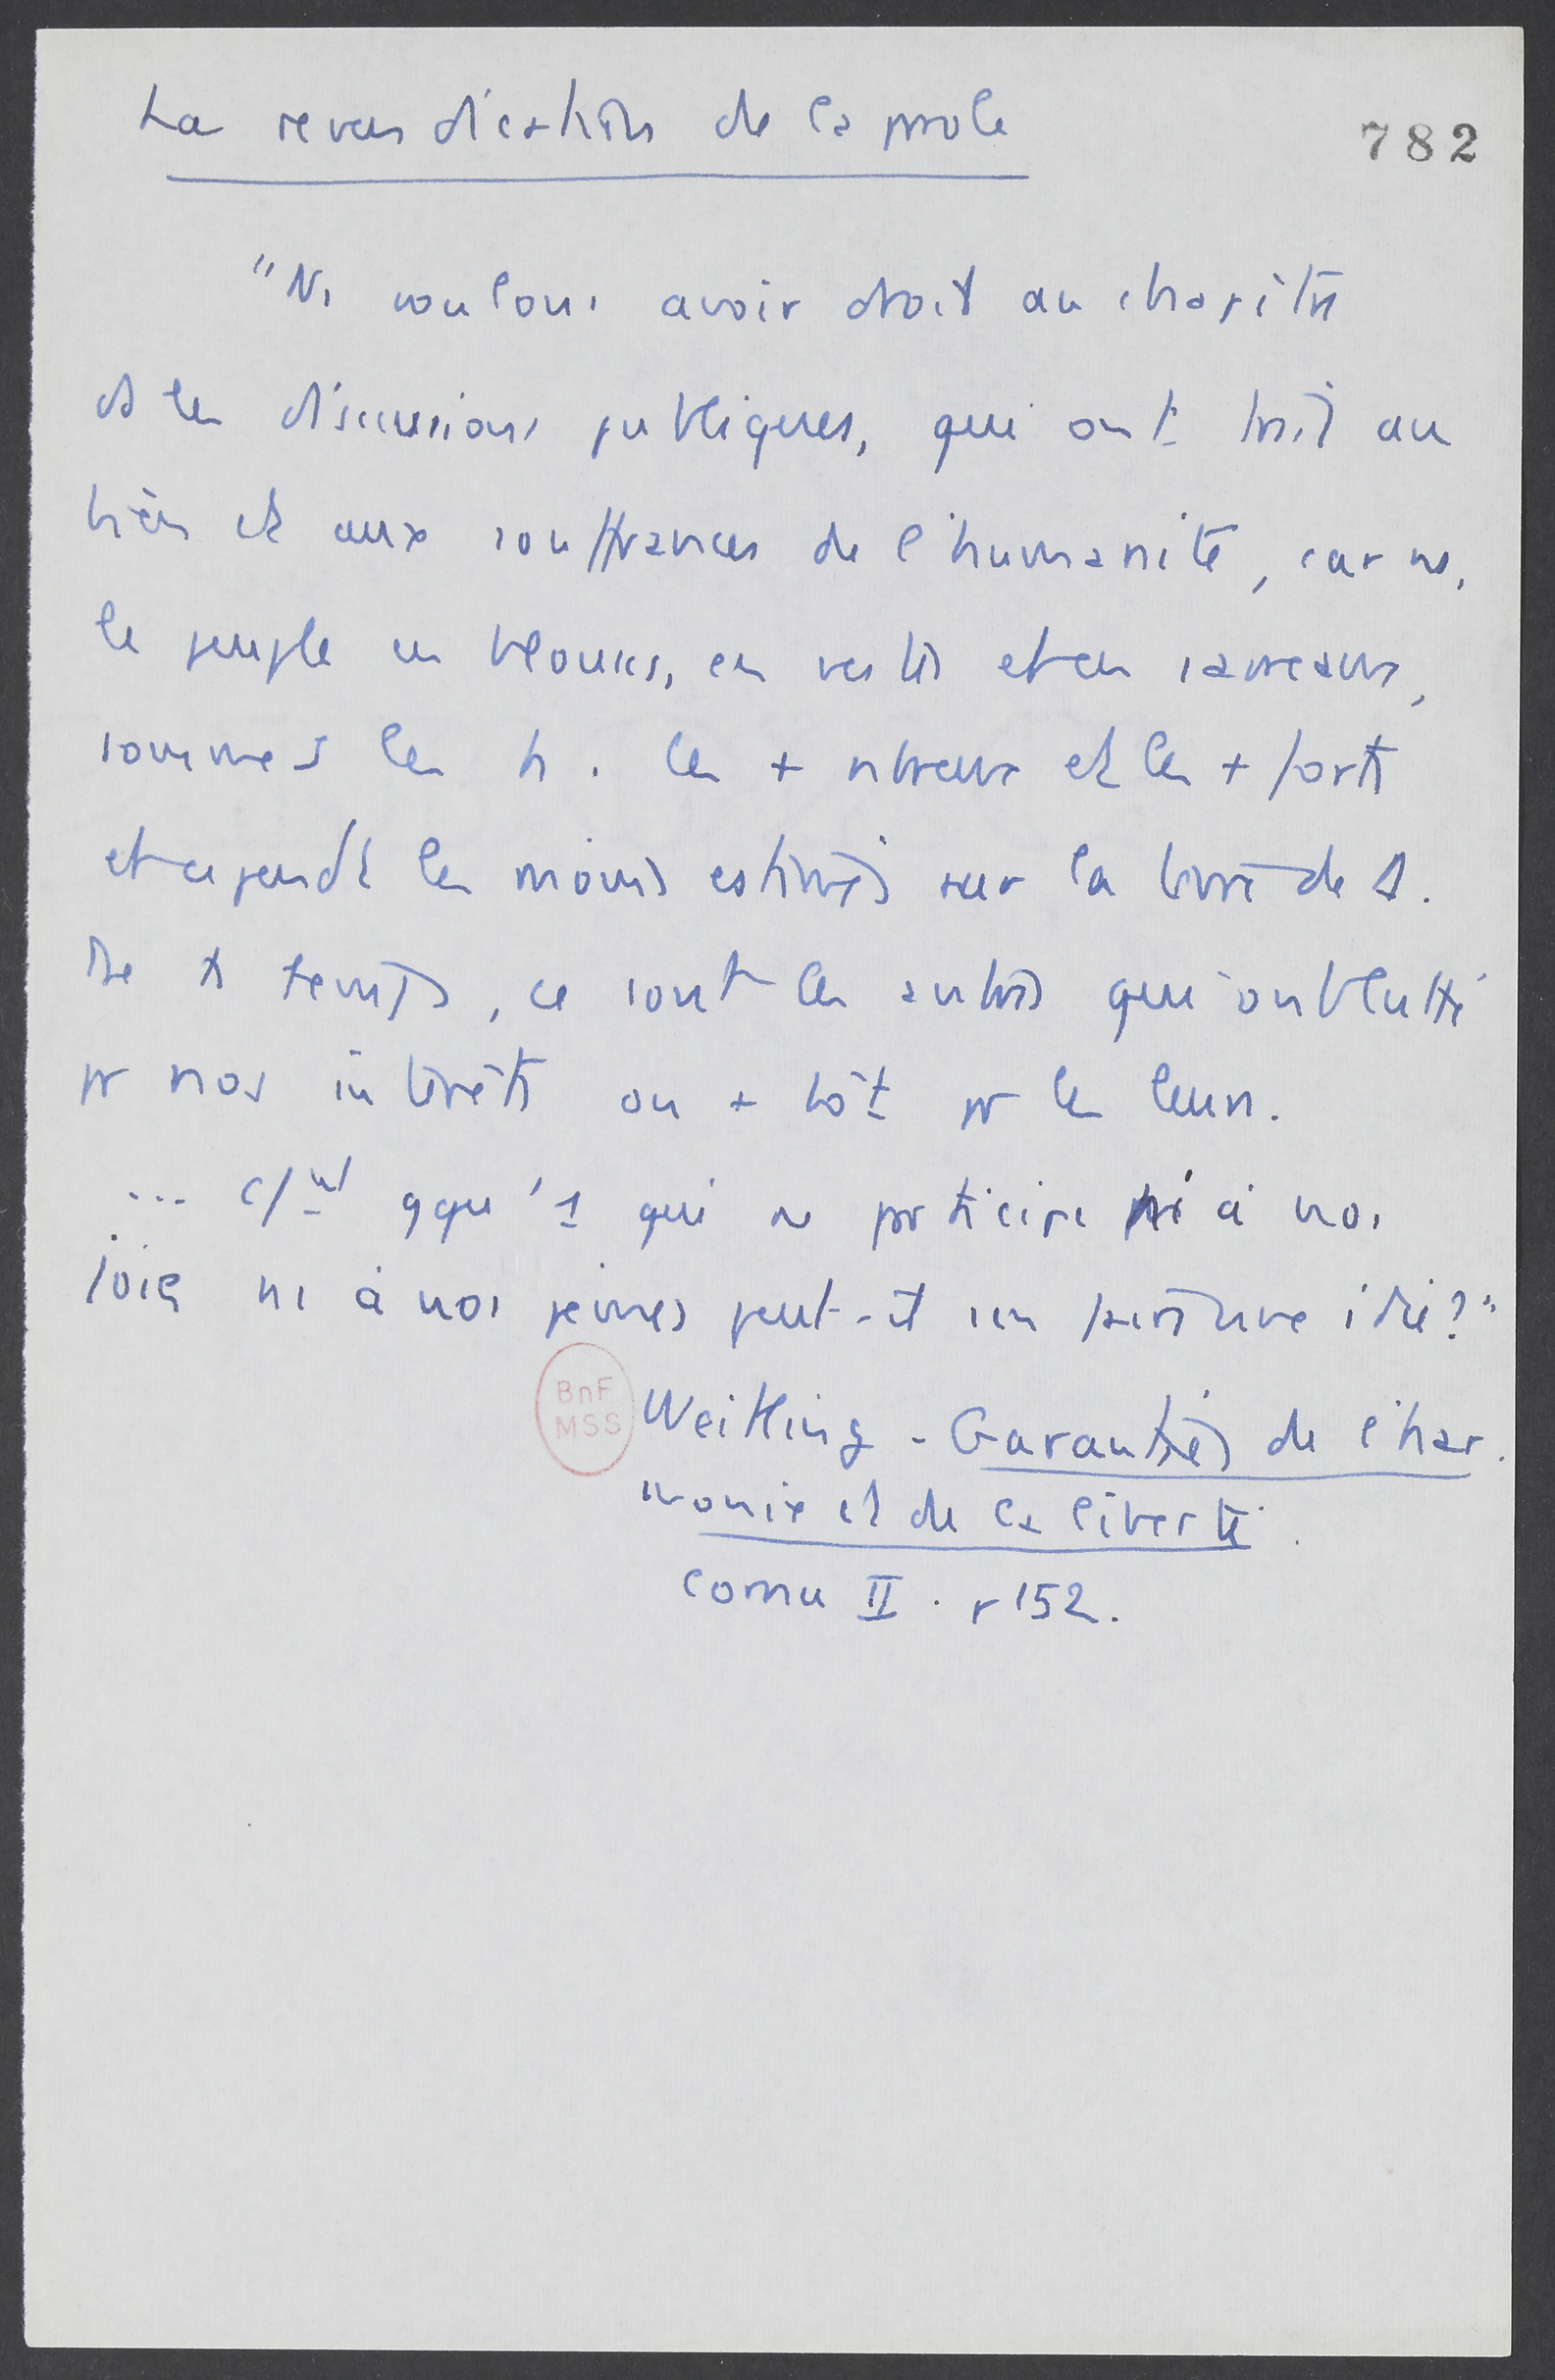 La revendication de la parole
782
"Ns voulons avoir droit au chapitre
ds les discussions publiques, qui ont trait au
bien et aux souffrances de l'humanité, car ns,
le peuple en blouses, en vestes et en sarreaux,
sommes les h. les + nbreux et les + forts
et cependt les moins estimés sur la terre de D.
De tt temps, ce sont les autres qui ont lutté
pr nos intérêts ou + tôt pr les leurs.
... c/nt qqu'1 qui ne participe ni à nos
joies ni à nos peines peut-il s'en faire une idée?"
BnF
MSS
Weitling - Garanties de l'har
monie et de la liberté.
Cornu II. p 152.